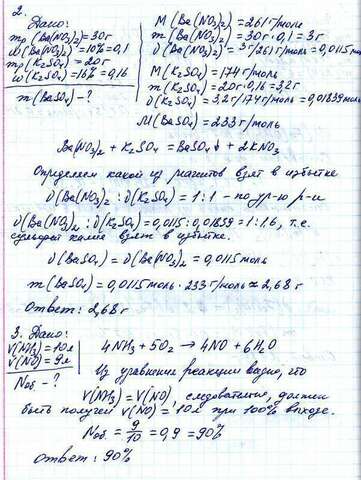 2.
Дано:
mр(Ba(NO₃)₂)=30г
ω(Ba(NO₃)₂)=10%=0,1
mр(K₂SO₄)=20г
ω(K₂SO₄)=16%=0,16
m(BaSO₄)-?
M(Ba(NO₃)₂)=261г/моль
m(Ba(NO₃)₂)=30г·0,1=3г
ν(Ba(NO₃)₂)=3г/261г/моль=0,0115моль
M(K₂SO₄)=174г/моль
m(K₂SO₄)=20г·0,16=3,2г
ν(K₂SO₄)=3,2г/174г/моль=0,01839моль
M(BaSO₄)=233г/моль
Ba(NO₃)₂ + K₂SO₄ = BaSO₄↓ + 2KNO₃
Определяем какой из реагентов взят в избытке
ν(Ba(NO₃)₂):ν(K₂SO₄)=1:1 - по ур-ю р-и
ν(Ba(NO₃)₂):ν(K₂SO₄)=0,0115:0,01839=1:1,6, т.е.
сульфат калия взят в избытке.
ν(BaSO₄)=ν(Ba(NO₃)₂=0,0115моль
m(BaSO₄)=0,0115моль·233г/моль≈2,68г
Ответ: 2,68г
3. Дано:
V(NH₃)=10л
V(NO)=9л
Nоб.-?
4NH₃+5O₂ → 4NO+6H₂O
Из уравнения реакции видно, что
V(NH₃)=V(NO), следовательно, должен
быть получен V(NO)=10л при 100% выходе.
Nоб.=9/10=0,9=90%
Ответ: 90%